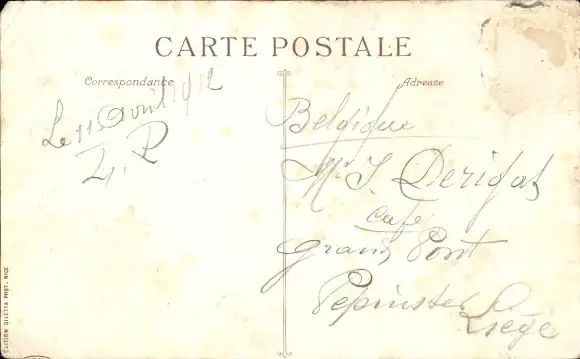 CARTE POSTALE
Correspondance
Adresse
Le 11 Avril 1912
L. P
Belgique
Mr J. Derigat
Café
grand Pont
Pepinster
Liége
EDITION GILETTA PHOT. NICE